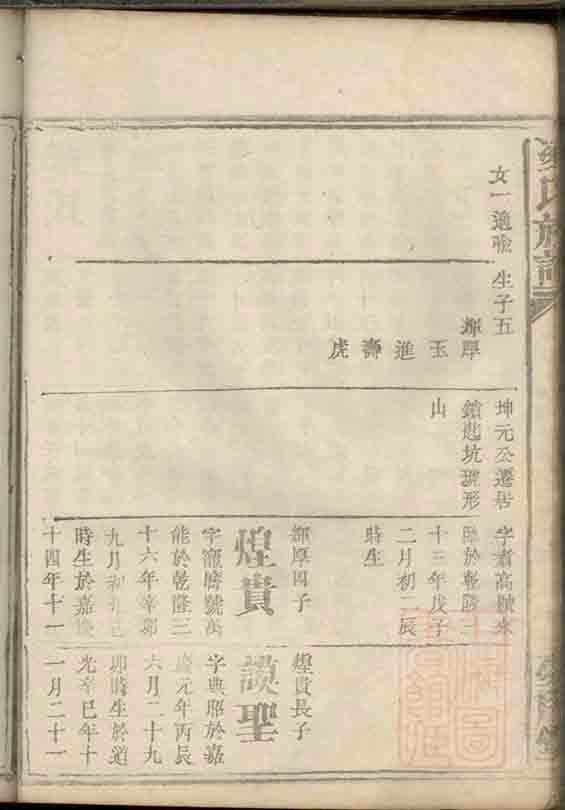 氏族譜
女一適喻
生子五
輝厚
玉
進
壽
虎
坤元公遷居
鎖匙坑
形
山
字
於乾隆三
十三年戊子
二月初
辰
時生
輝厚四子
煌貴
字寵
號
能於乾隆三
十六年辛卯
九月初
巳
時生於嘉慶
十四年十一
煌貴長子
謨聖
字典
於嘉
慶元年丙辰
六月二十九
卯時生於道
光辛巳年十
一月二十一